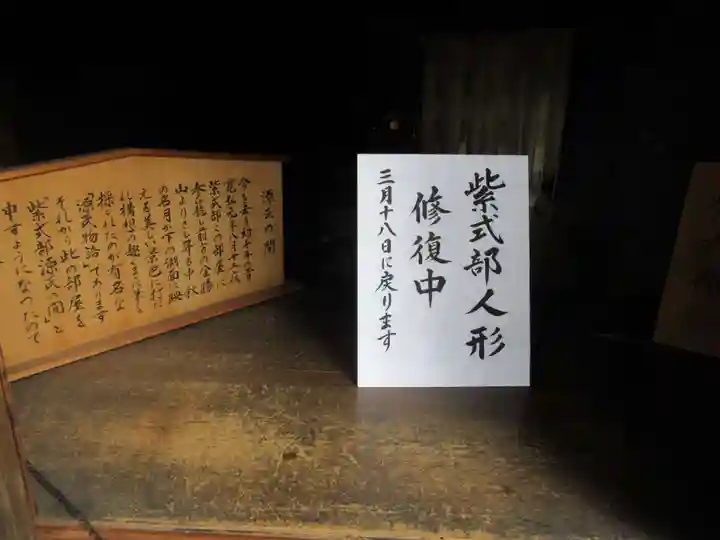 紫式部人形
修復中
三月十八日に戻ります
源氏の間
今を去る約千年の昔
寛弘元年八月十五夜
紫式部この部屋に
参籠し前方の金勝
山よりさし昇る中秋
の名月が下の湖面に映
える美しい景色に打た
れ構想の趣くまゝに筆を
採られたのが有名な
「源氏物語」であります
それから此の部屋を
「紫式部源氏の間」と
申すようになったので